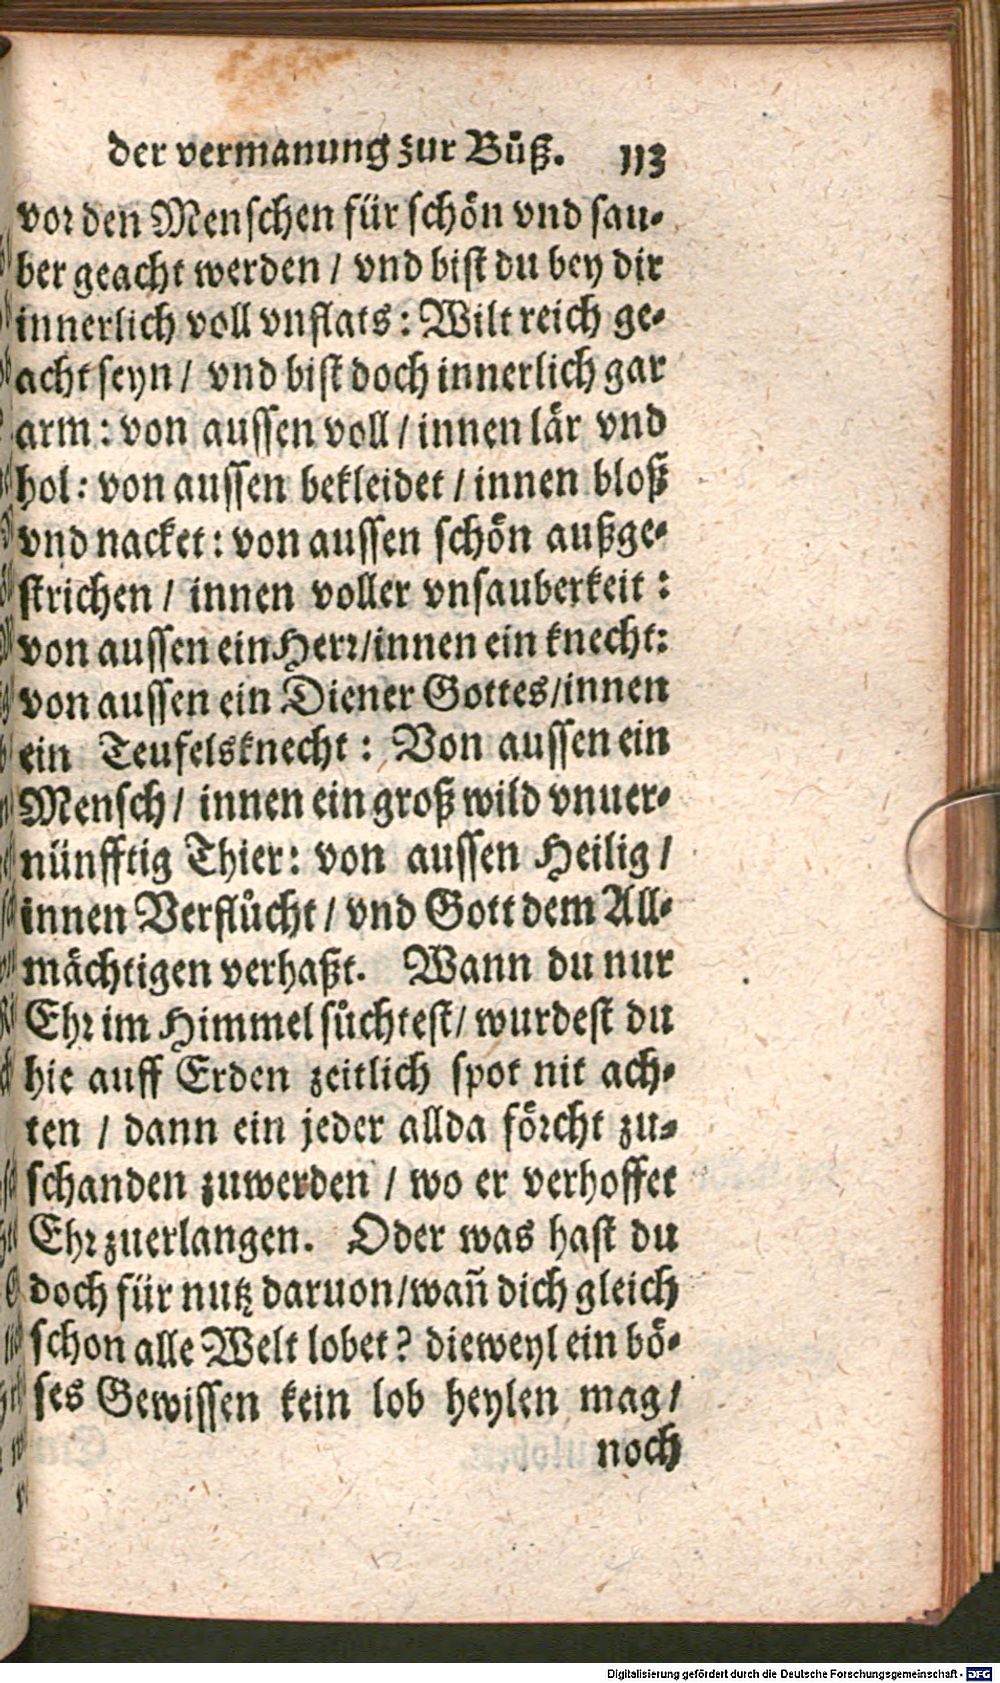 der vermanung zur Bůß. 113
vor den Menschen für schön vnd sau-
ber geacht werden / vnd bist du bey dir
innerlich voll vnflats: Wilt reich ge-
acht seyn / vnd bist doch innerlich gar
arm: von aussen voll / innen lär vnd
hol: von aussen bekleidet / innen bloß
vnd nacket: von aussen schön außge-
strichen / innen voller vnsauberkeit:
von aussen ein Herr/innen ein knecht:
von aussen ein Diener Gottes/innen
ein Teufelsknecht: Von aussen ein
Mensch / innen ein groß wild vnuer-
nünfftig Thier: von aussen Heilig /
innen Verflůcht / vnd Gott dem All-
mächtigen verhaßt. Wann du nur
Ehr im Himmel sůchtest/ wurdest du
hie auff Erden zeitlich spot nit ach-
ten / dann ein jeder allda förcht zu-
schanden zuwerden / wo er verhoffet
Ehr zuerlangen. Oder was hast du
doch für nutz daruon/wañ dich gleich
schon alle Welt lobet? dieweyl ein bö-
ses Gewissen kein lob heylen mag/
noch
Digitalisierung gefördert durch die Deutsche Forschungsgemeinschaft - DFG